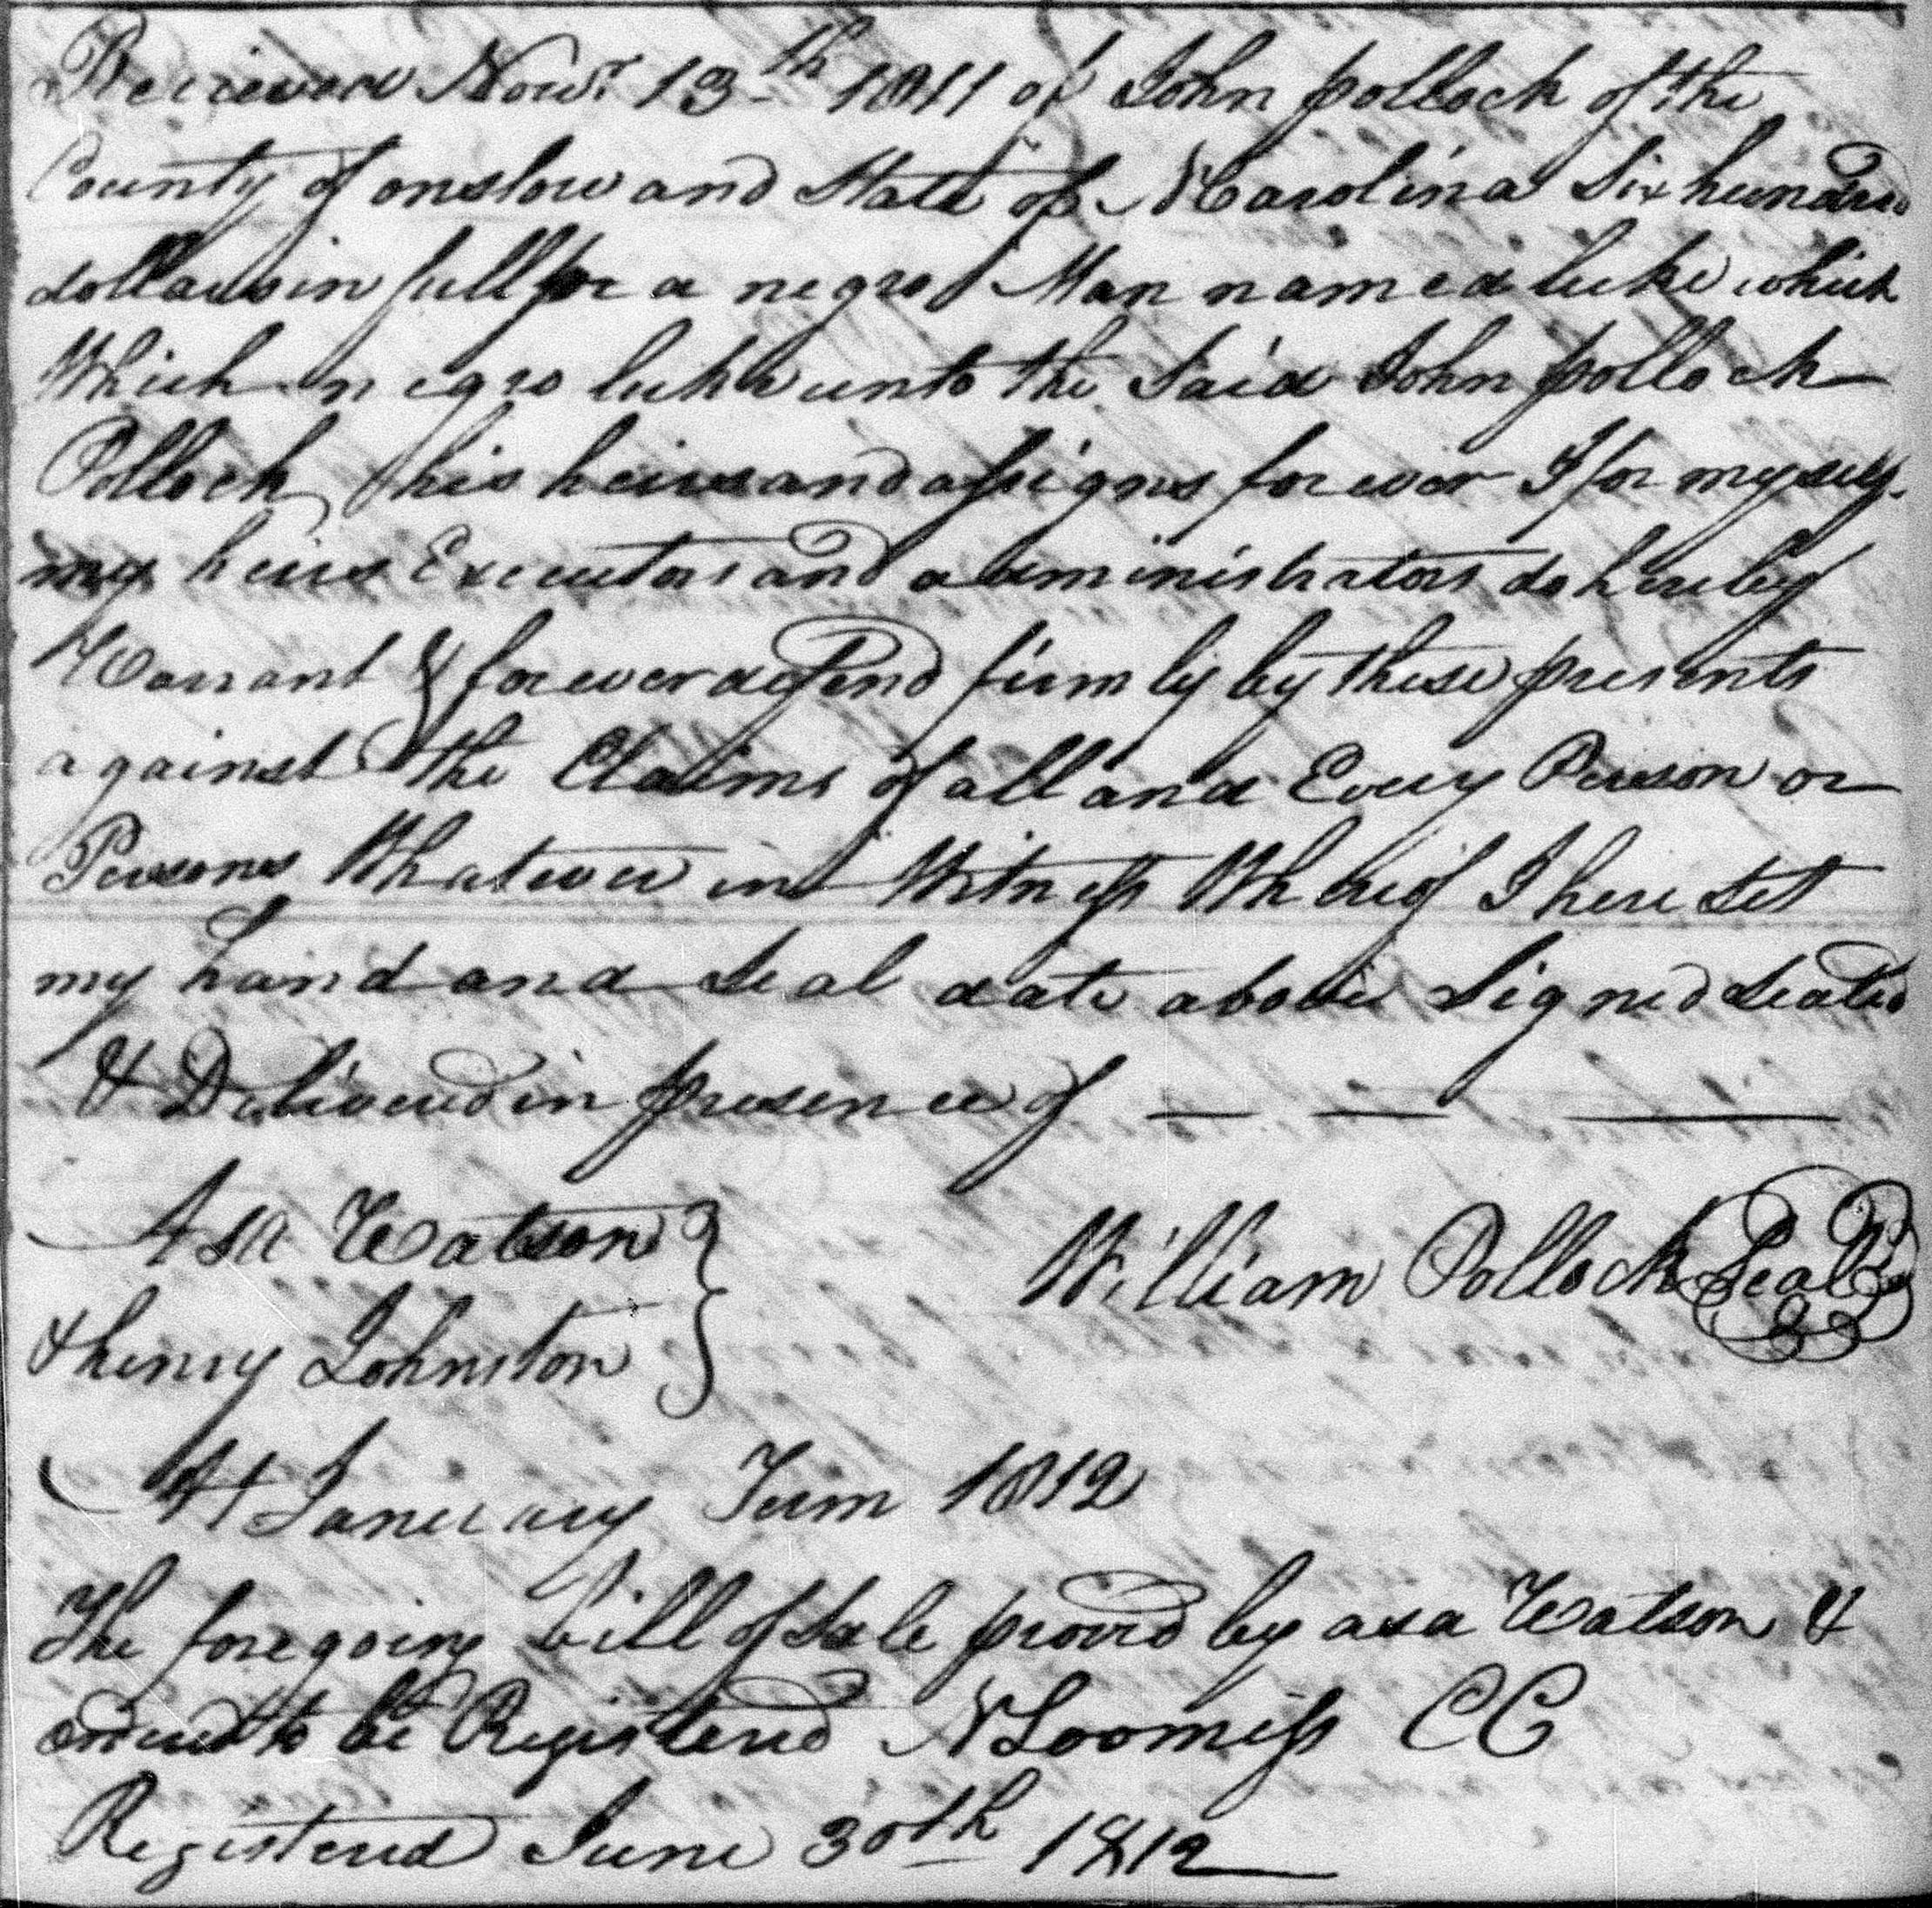 Received Novr 13th 1811 of John pollock of the
County of onslow and State of N Carolina Six hundred
dollars in full for a negro Man named luke which
Which negro luke unto the Said John pollock
Pollock his heirs and assigns forever I for my self
my heirs Executors and administrators do hereby
Warrant & forever defend firmly by these presents
against the Claims of all and Every Person or
Persons Whatever in Witness Whereof I here set
my hand and Seal date above Signed Sealed
& Delivered in presence of
Asa Watson
& henry Johnston
William Pollock Seal
At January Term 1812
The foregoing bill of Sale provd by asa Watson &
ordered to be Registered N Loomiss CC
Registered June 30th 1812